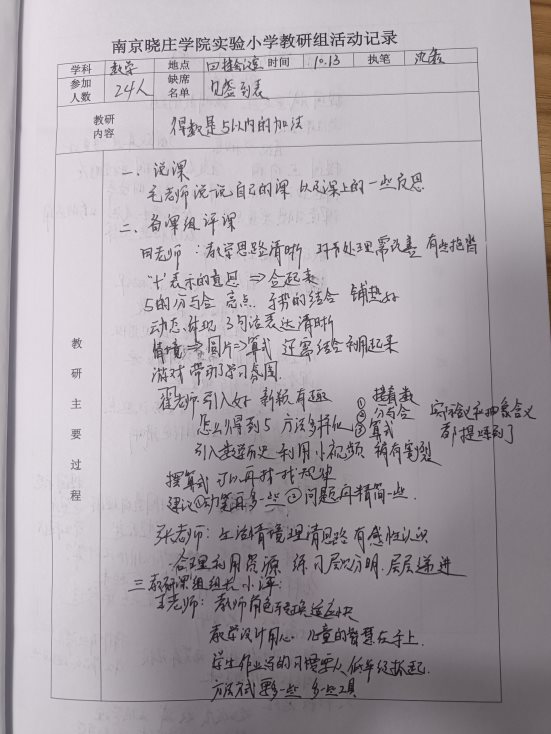 南京晓庄学院实验小学教研组活动记录
学科 数学 地点 四楼会议室 时间 10.13 执笔
参加人数 24人 缺席名单 见签到表
教研内容 得数是5以内的加法
教研主要过程
一、说课
毛老师说说自己的课 以及课上的一些反思
二、备课组评课
田老师：教学思路清晰 环节处理需改善 有些拖沓
"+"表示的意思 ⇒ 合起来
5的分与合 亮点 手势的结合 铺垫好
动态体现 3句话表达清晰
情境⇒图片⇒算式 还需结合利用起来
游戏带动了学习氛围
翟老师 引入好 新颖有趣 ①接着数
怎么得到5 方法多样化 ②分与合 实际意义和抽象含义
③算式 都提呼到了
引入数学历史 利用小视频 稍有割裂
摆算式 可以再找找规律
建议①动笔再多一些 ②问题再精简一些.
张老师：生活情境理清思路 有感性认识
合理利用资源 练习层次分明 层层递进
三、教研课组组长小评：
王老师：教师角色转换适应快
教学设计用心 儿童的智慧在手上.
学生作业写的习惯要从低年级抓起.
方法试多一些 多一些工具